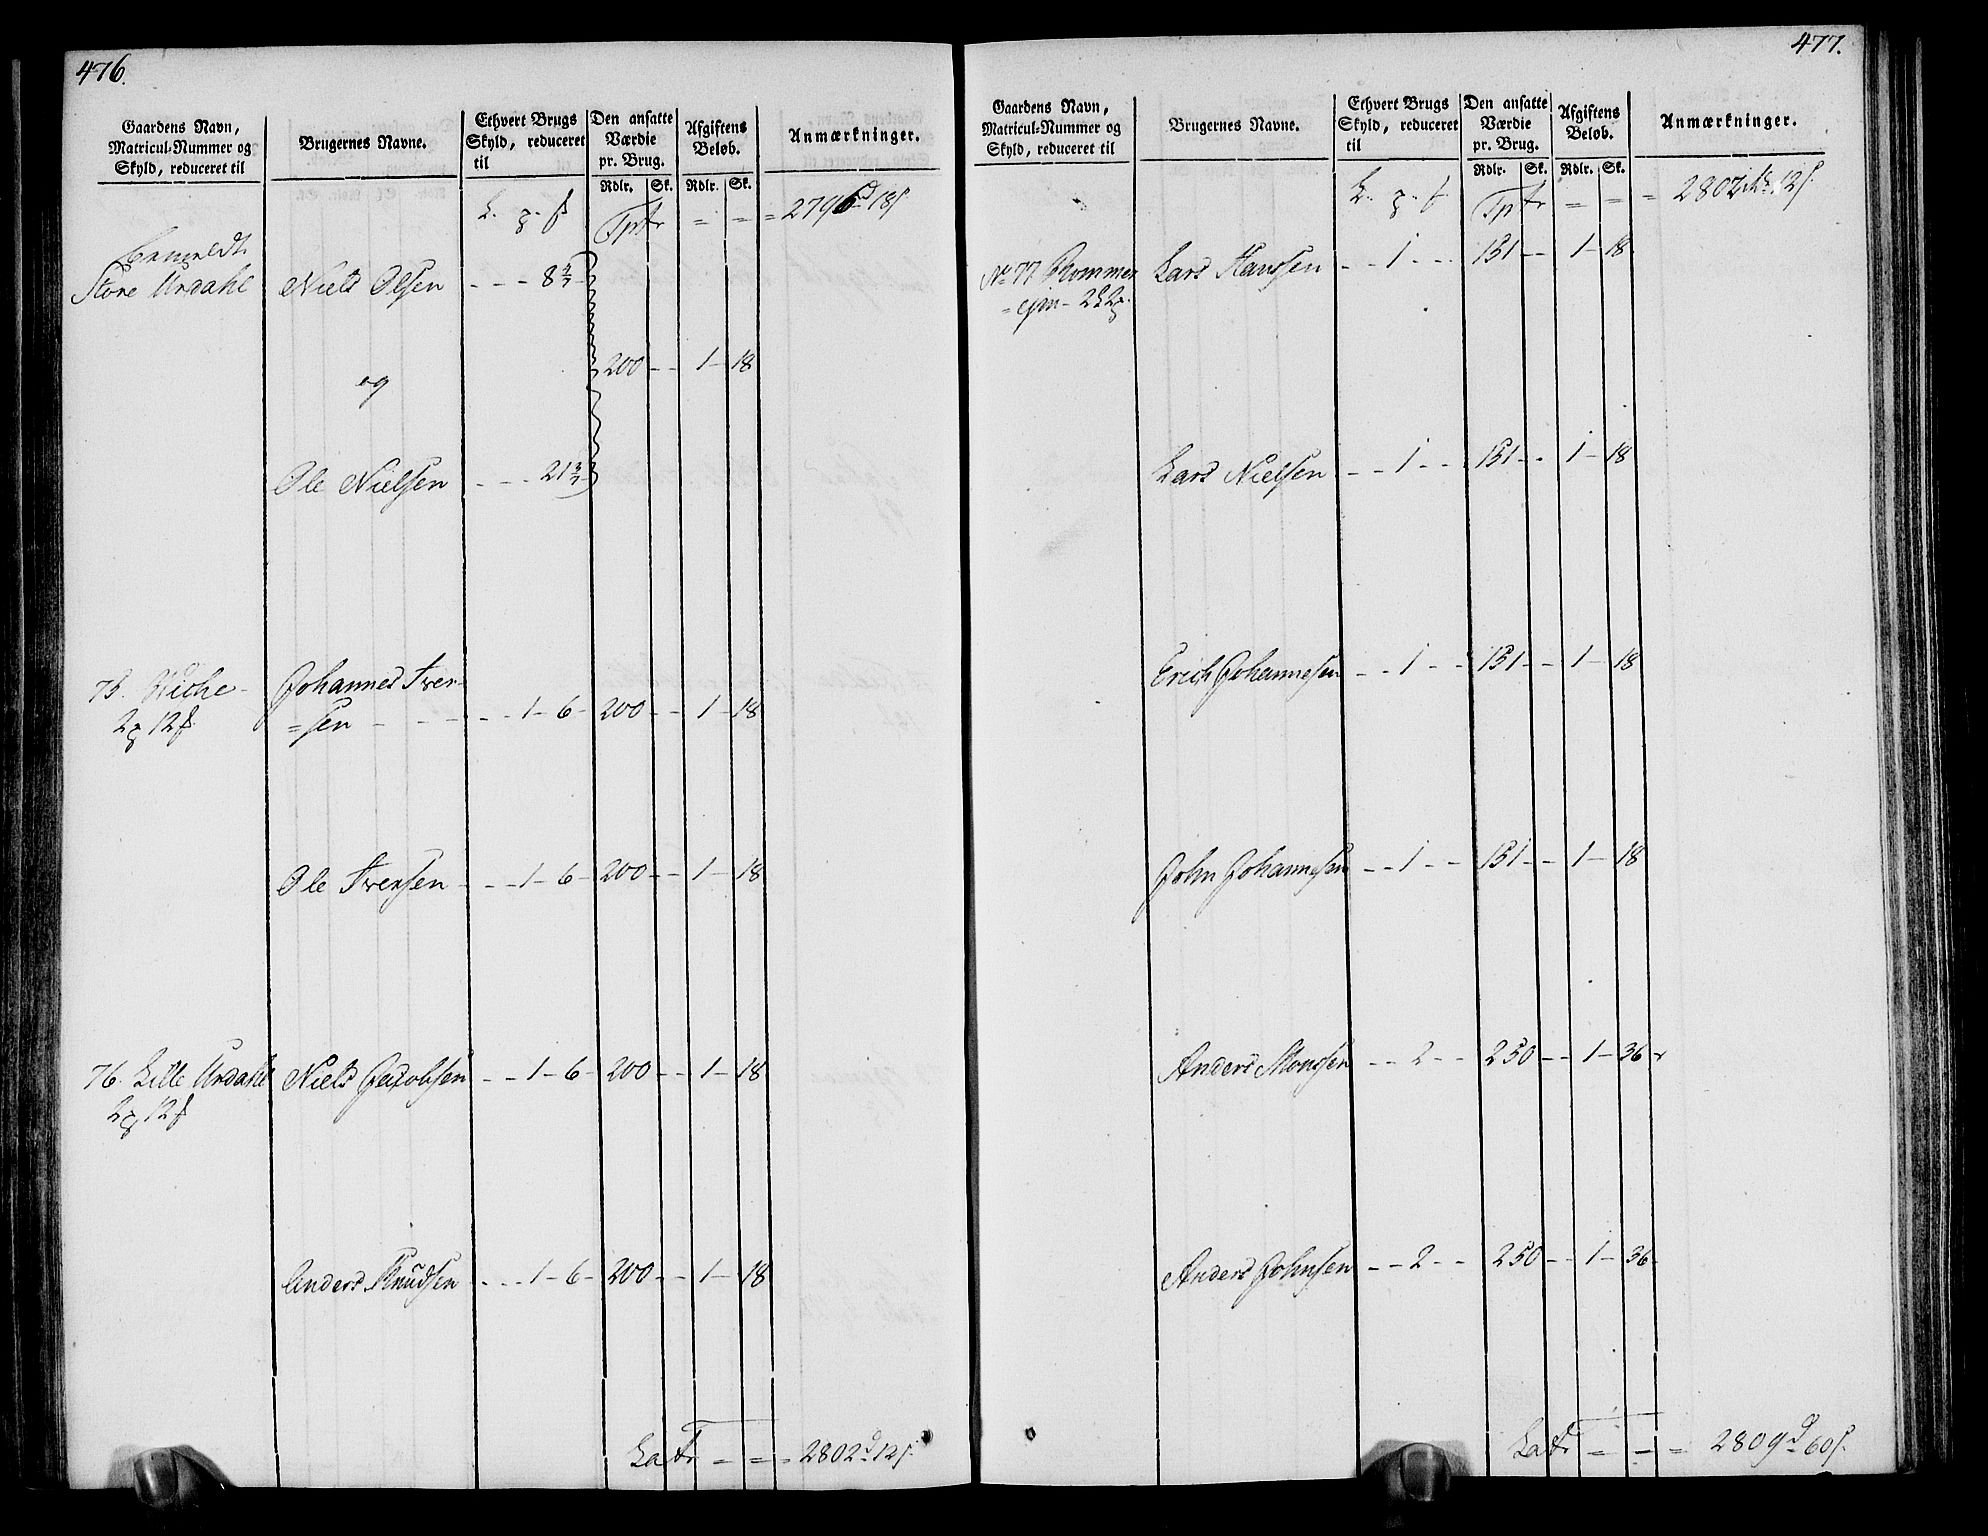 476.
Gaardens Navn, Matricul-Nummer og Skyld, reduceret til
Brugernes Navne.
Ethvert Brugs Skyld, reduceret til
Den ansatte Værdie pr. Brug.
Afgiftens Beløb.
Anmærkninger.
Rdlr. Sk. Rdlr. Sk.
Tptr = = = 2796d 18s
bemeldte
Store Urdahl Niels Olsen - - - 8 4/7
og 200 - - 1 - 18
Ole Nielsen - - - 21 3/7
75. Wiche Johannes Iver-
2 12 =sen - - - 1 - 6 - 200 - - 1 - 18
Ole Iversen - - - 1 - 6 - 200 - - 1 - 18
76. Lille Urdahl Niels Jacobsen - - - 1 - 6 - 200 - - 1 - 18
2 12
Anders Knudsen - - - 1 - 6 - 200 - - 1 - 18
Latr = = = 2802d 12s
477.
Gaardens Navn, Matricul-Nummer og Skyld, reduceret til
Brugernes Navne.
Ethvert Brugs Skyld, reduceret til
Den ansatte Værdie pr. Brug.
Afgiftens Beløb.
Anmærkninger.
Rdlr. Sk. Rdlr. Sk.
Tptr = = = 2802 12s
No 77 Lars Hansen - - 1 - - - 151 - - 1 - 18
Lars Nielsen - - 1 - - 151 - - 1 - 18
Erich Johannesen - - 1 - - 151 - - 1 - 18
John Johannesen - - 1 - - 151 - - 1 - 18
Anders Monssen - - 2 - - 250 - - 1 - 36
Anders Johnsen - - 2 - - 250 - - 1 - 36
Latr = = = 2809d 60s